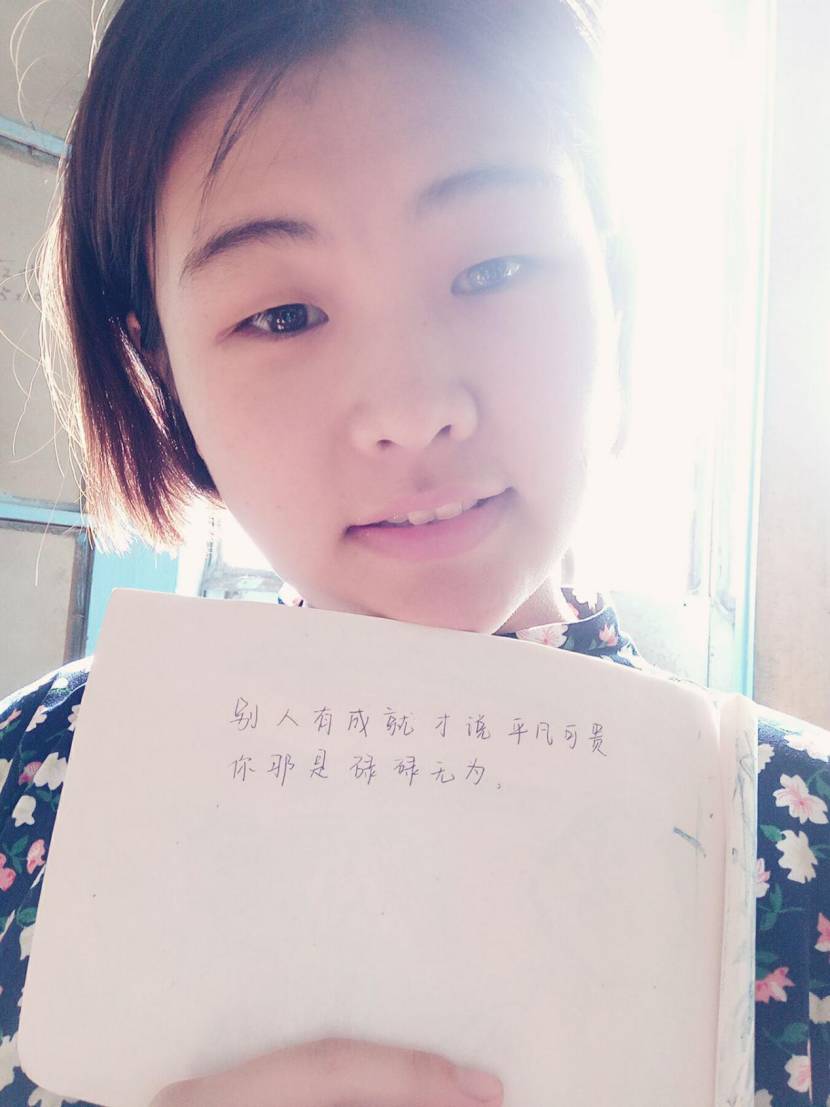 别人有成就才说平凡可贵
你那是碌碌无为。